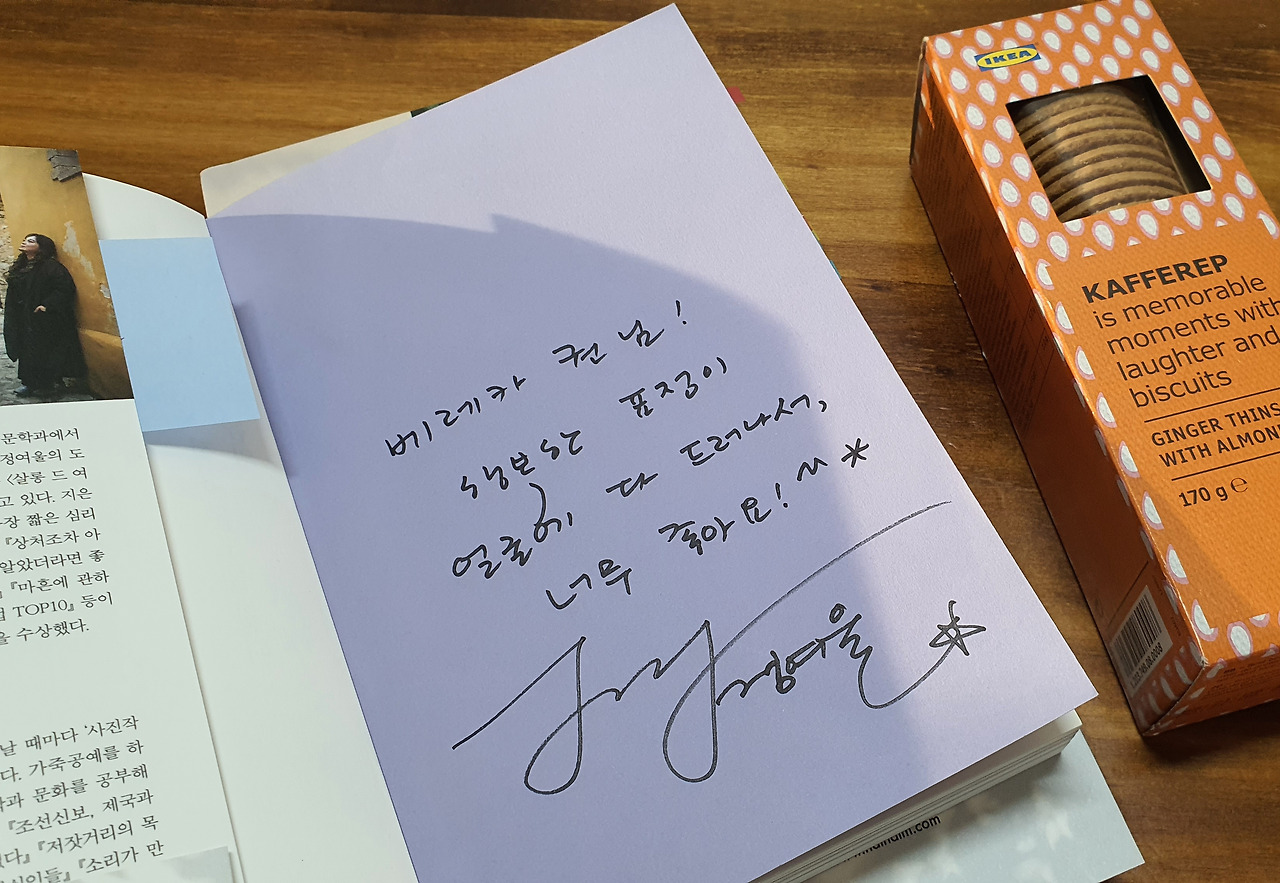 문학과에서
정여울의 도
〈살롱 드 여
고 있다. 지은
장 짧은 심리
『상처조차 아
알았더라면 좋
』『마흔에 관하
TOP10』 등이
을 수상했다.
날 때마다 '사진작
다. 가죽공예를 하
과 문화를 공부해
『조선신보, 제국과
『저잣거리의 목
『소리가 만
베레카 권 님!
표정이
얼굴에 다 드러나서,
너무 좋아요! ^^ *
정여울
IKEA
KAFFEREP
is memorable
moments with
laughter and
biscuits
GINGER THINS
WITH ALMON
170 g ℮